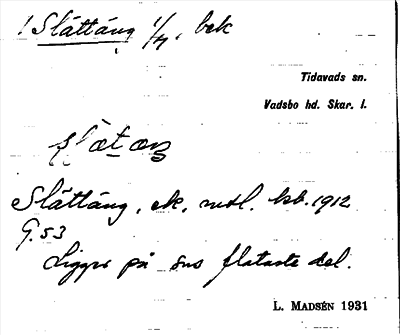 ! Slättäng 1/4, bek
Tidavads sn.
Vadsbo hd. Skar. l.
slætæŋ
Slättäng, ek. mtl. ksb. 1912
G. 53
Ligger på sns flataste del.
L. MADSÉN 1931